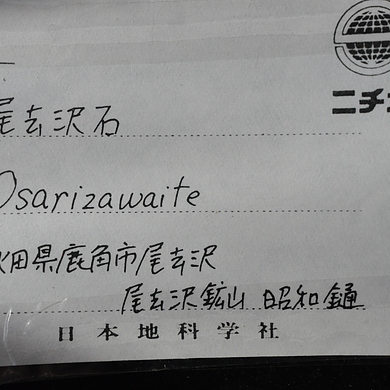 ニチ
尾去沢石
Osarizawaite
秋田県鹿角市尾去沢
尾去沢鉱山 昭和鑓
日本地科学社